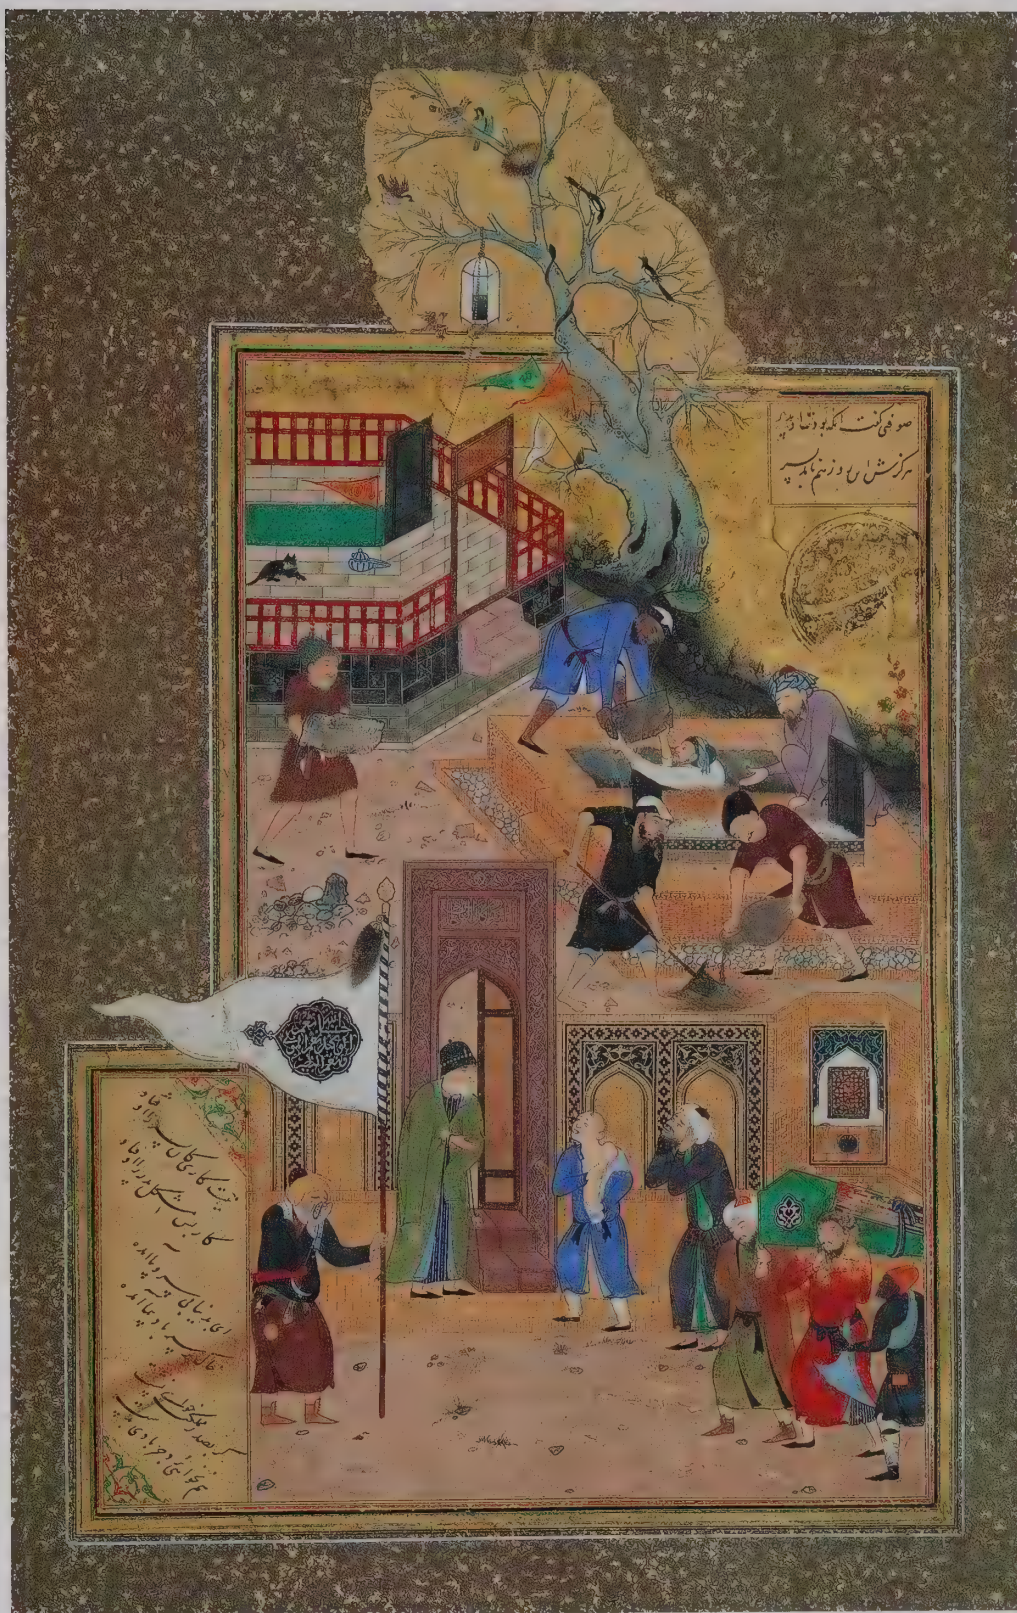 صوفی گفت آنکه بودت او پدر
هرگزش این روز هم نامد بسر
نیست کاری کان پسر را اوفتاد
کار بس مشکل پدر را اوفتاد
ای بدنیا بی سر و پا آمده
خاک بر سر باد پیما آمده
گر بصدر مملکت خواهی نشست
هم نخواهی رفت جز بادی بدست